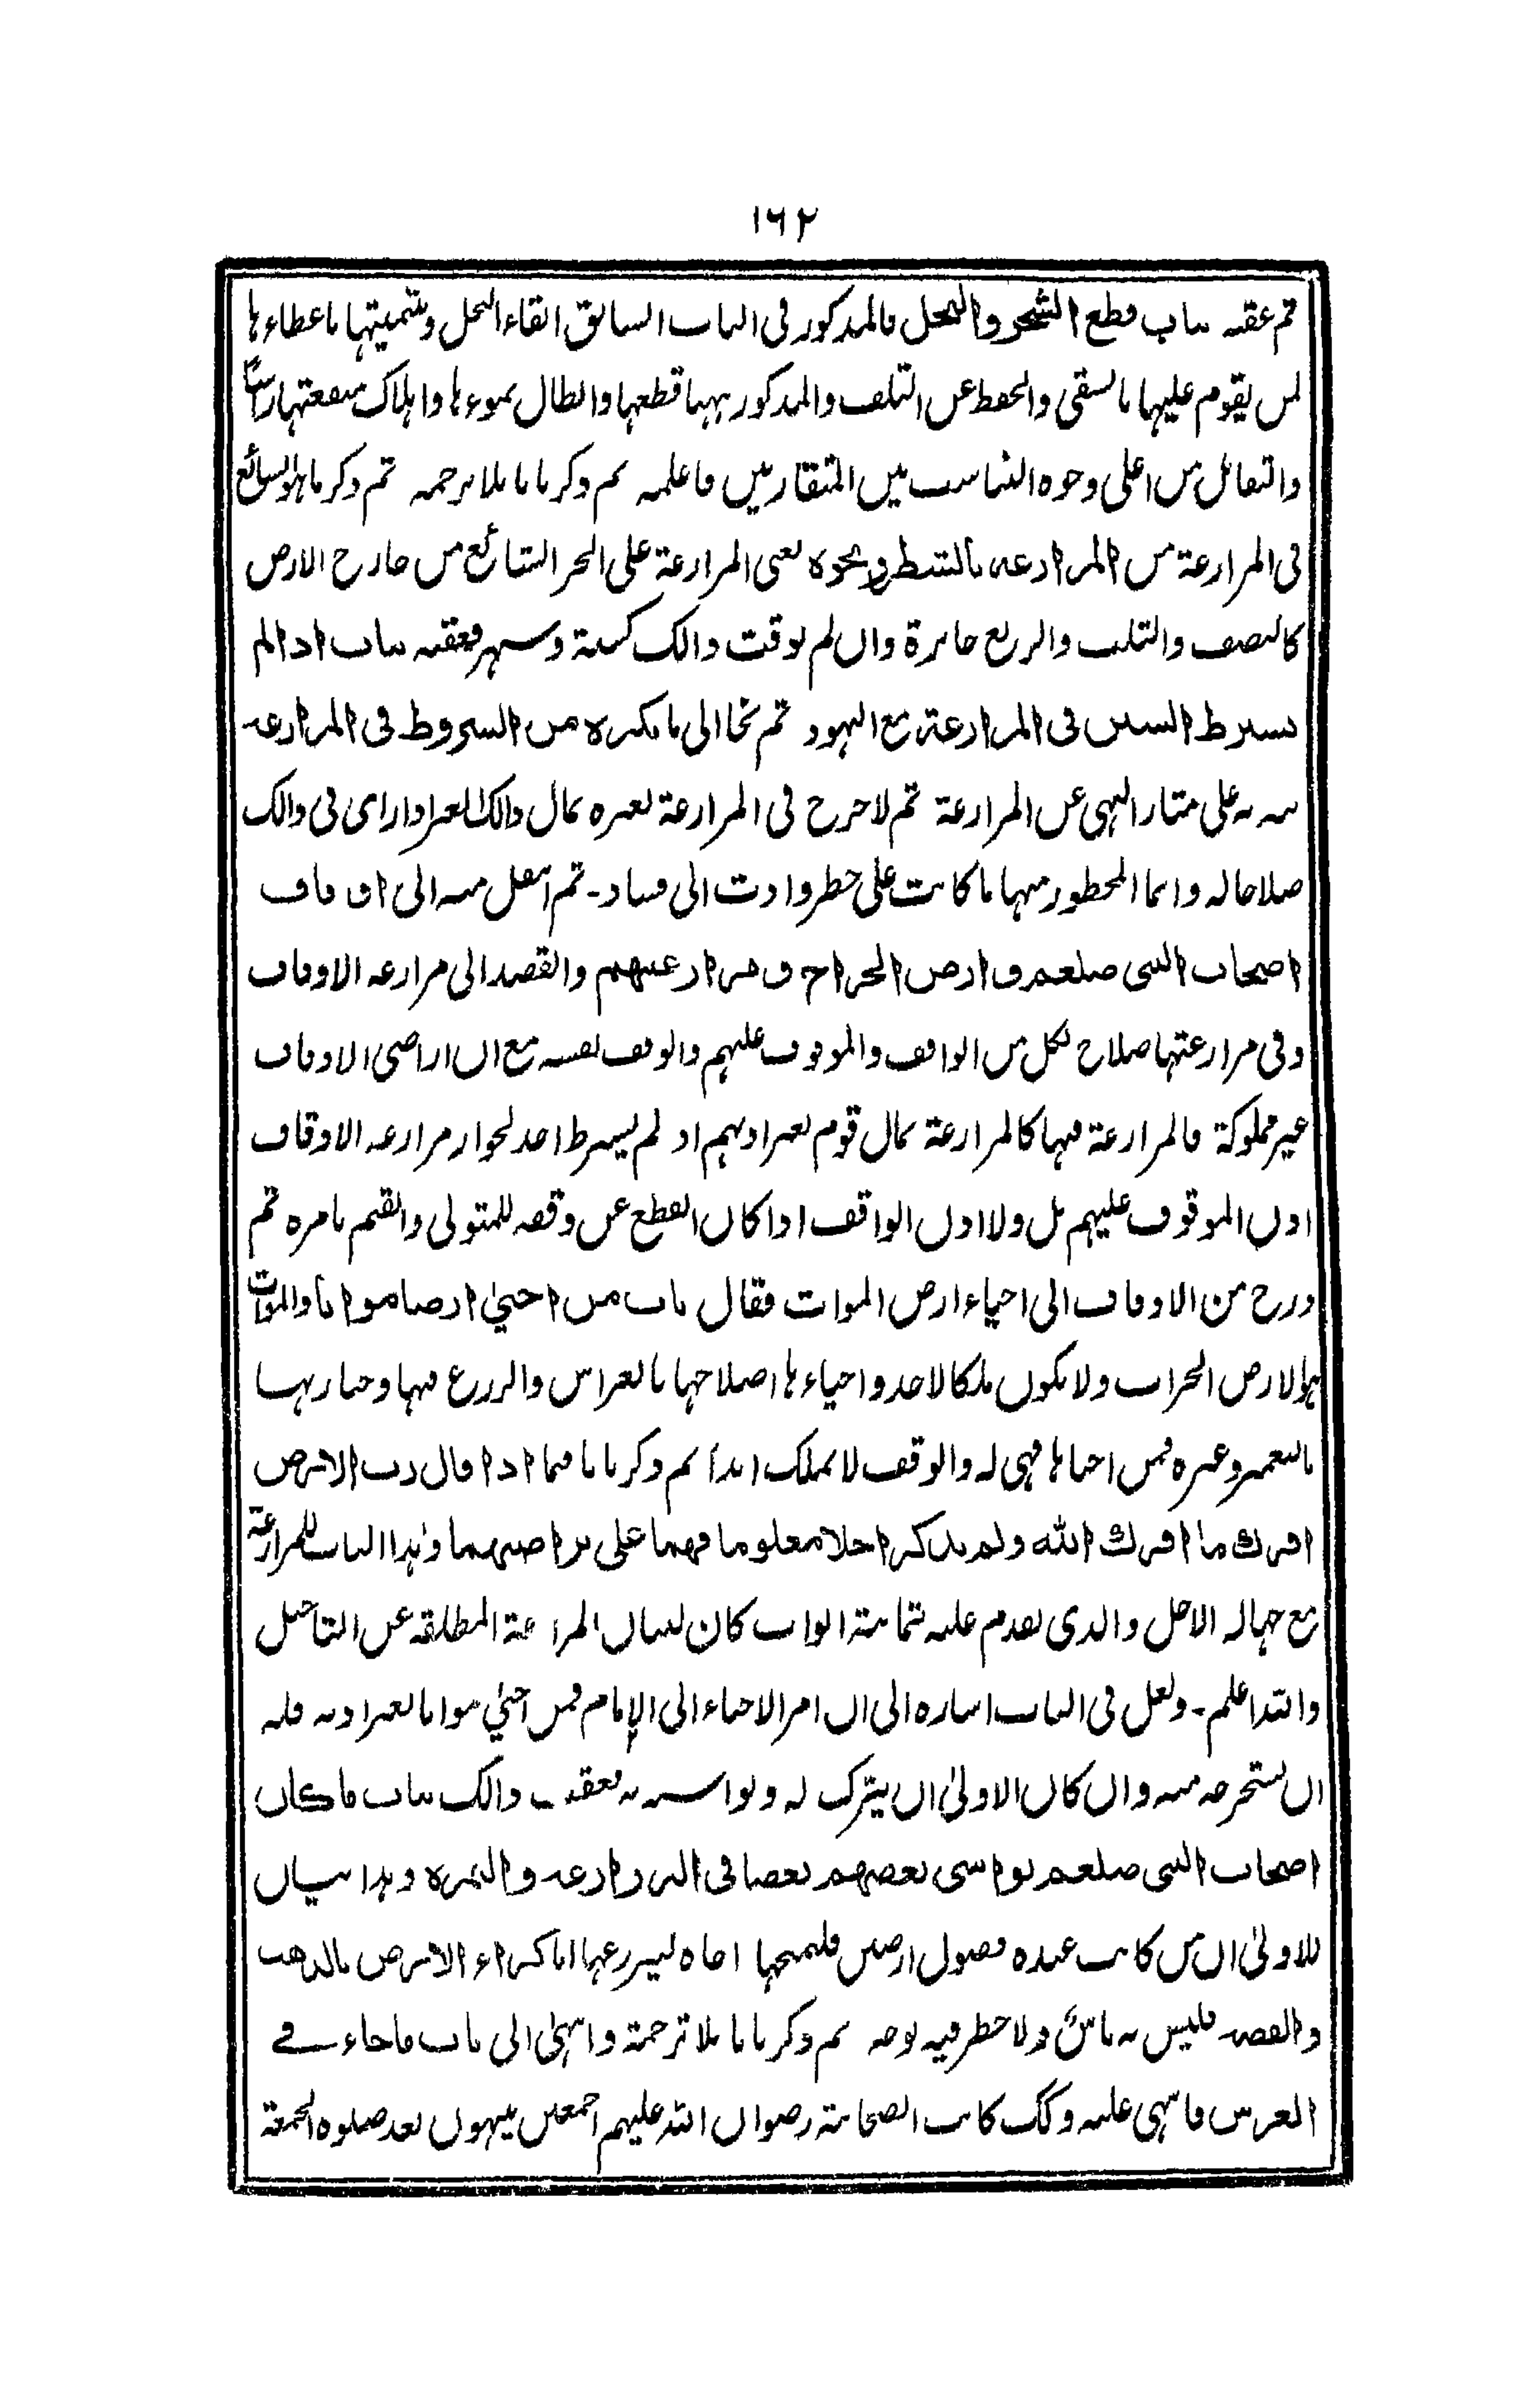 ١٦٢
ثم عقبه بباب قطع الشجر والنخل فالمذكور فى الباب السابق ابقاء النخل وتنميتها باعطاءها
لمن يقوم عليها بالسقى والحفظ عن التلف والمذكور ههنا قطعها وابطال نموءها واهلاك منفعتها راسًا
والتقابل من اعلى وجوه التناسب بين المتقاربين فاعلمه ثم ذكر بابا بلا ترجمه ثم ذكر ما هو السائغ
فى المزارعة من المزارعه بالشطر ونحوه يعنى المزارعة على الجزء الشائع من خارج الارض
كالنصف والثلث والربع جائزة وان لم يوقت ذالك كسنة وشهر فعقبه بباب اذا لم
يشترط السنين فى المزارعة مع اليهود ثم نحا الى ما يكره من الشروط فى المزارعه
نبه به على مثار النهى عن المزارعة ثم لا حرج فى المزارعة لغيره بمال ذالك الغير اذا راى فى ذالك
صلاحا له وانما المحظور منها ما كانت على خطر وادت الى فساد - ثم انتقل منه الى اوقاف
اصحاب النبى صلعم وارض الخراج ومزارعتهم والقصد الى مزارعه الاوقاف
وفى مزارعتها صلاح لكل من الواقف والموقوف عليهم والوقف نفسه مع ان اراضى الاوقاف
غير مملوكة فالمزارعة فيها كالمزارعة بمال قوم بغير اذنهم اذ لم يشترط احد لجواز مزارعه الاوقاف
اذن الموقوف عليهم بل ولا اذن الواقف اذا كان القطع عن وقفه للمتولى والقيم بامره ثم
درج من الاوقاف الى احياء ارض الموات فقال باب من احيىٰ ارضا مواتا والموات
هو الارض الخراب ولا يكون ملكا لاحد واحياءها اصلاحها بالغراس والزرع فيها وحيازتها
بالتعمير وغيره فمن احياها فهى له والوقف لا يملك ابدا ثم ذكر بابا فيما اذا قال رب الارض
اقرك ما اقرك الله ولم يذكر اجلا معلوما فهما على تراضيهما وهذا الباب للمزارعة
مع جهالة الاجل والذى تقدم عليه ثمانية ابواب كان لبيان المزارعة المطلقه عن التاجيل
والله اعلم - ولعل فى الباب اشاره الى ان امر الاحياء الى الامام فمن احيىٰ مواتا بغير اذنه فله
ان يستخرجه منه وان كان الاولىٰ ان يترك له ويواسيه به فعقب ذالك بباب ما كان
اصحاب النبى صلعم يواسى بعضهم بعضا فى الزراعه والثمره وهذا بيان
للاولىٰ ان من كانت عنده فضول ارضين فليمنحها اخاه ليزرعها اما كراء الارض بالذهب
والفضه فليس به باس ولا حظر فيه بوجه ثم ذكر بابا بلا ترجمة وانتهىٰ الى باب ما جاء فى
الغرس فانتهى عليه وكك كانت الصحابة رضوان الله عليهم اجمعين ينتهون بعد صلوه الجمعة